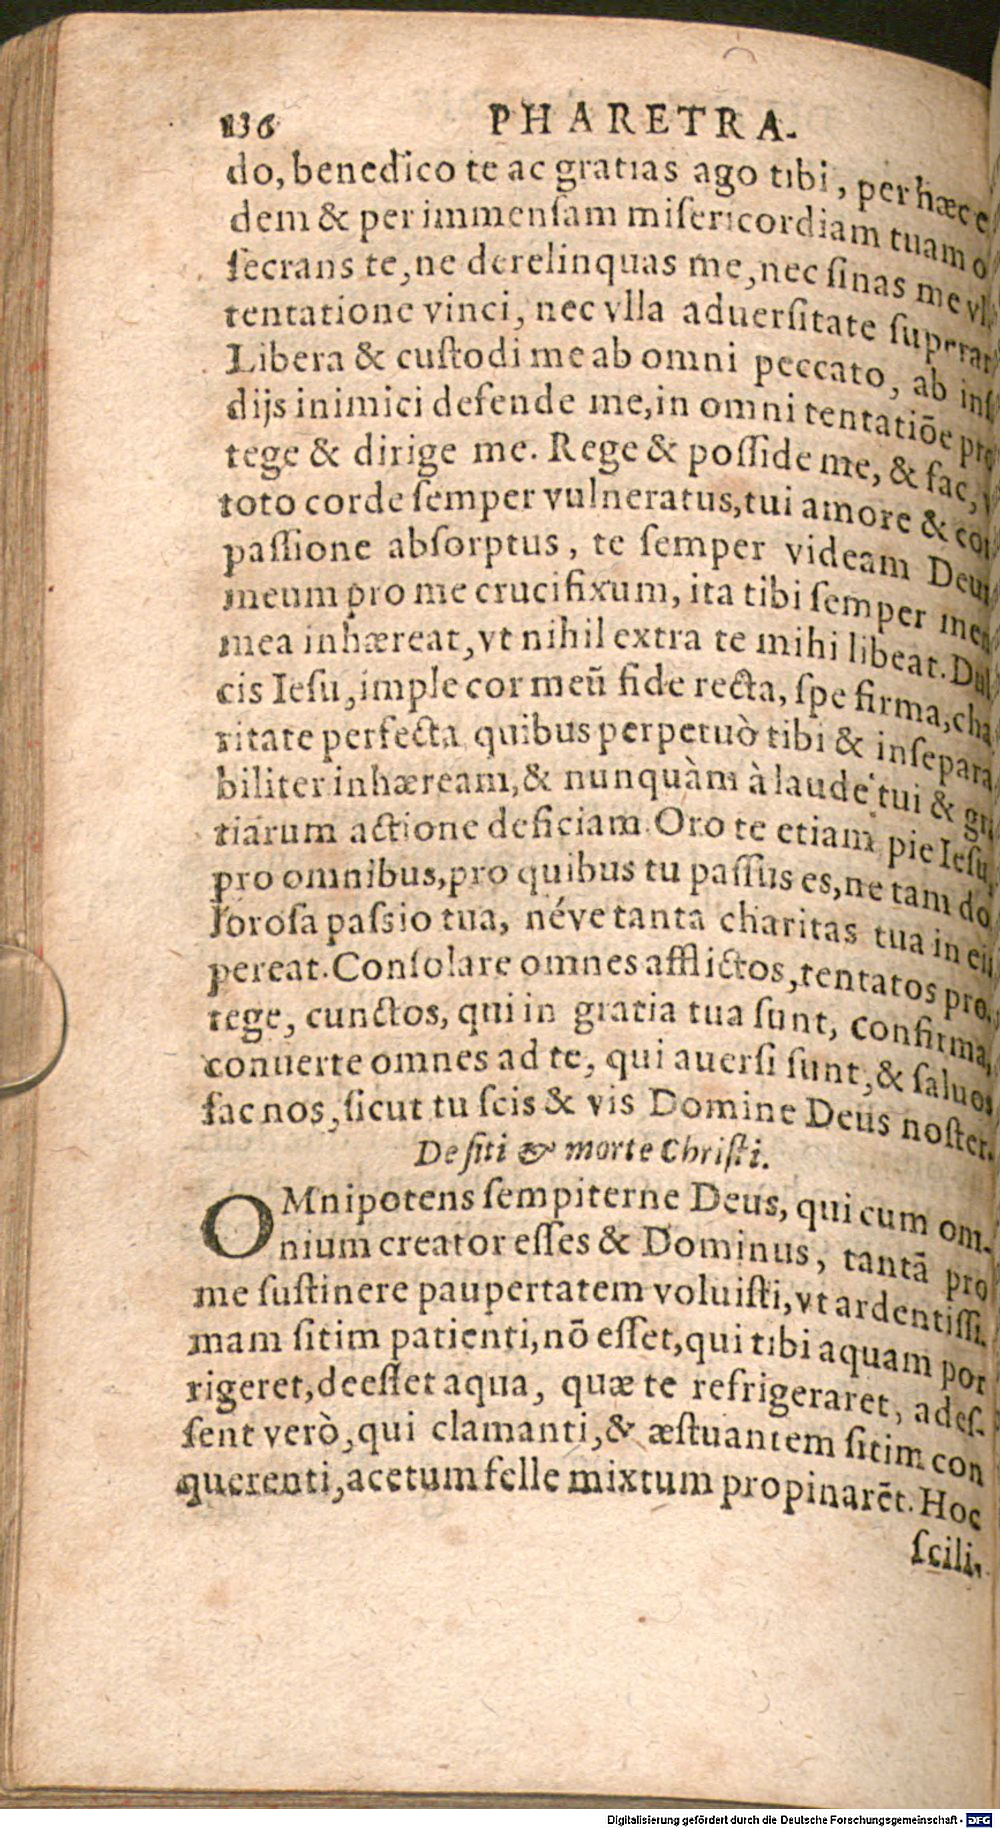 136 PHARETRA.
do, benedico te ac gratias ago tibi, per hæc e
dem & per immensam misericordiam tuam o
secrans te, ne derelinquas me, nec sinas me vl
tentatione vinci, nec vlla aduersitate superar
Libera & custodi me ab omni peccato, ab insi
dijs inimici defende me, in omni tentatiōe pro
tege & dirige me. Rege & posside me, & fac, v
toto corde semper vulneratus, tui amore & com
passione absorptus, te semper videam Deum
meum pro me crucifixum, ita tibi semper men
mea inhæreat, vt nihil extra te mihi libeat. Dul
cis Iesu, imple cor meū fide recta, spe firma, cha
ritate perfecta quibus perpetuò tibi & insepara
biliter inhæream, & nunquàm à laude tui & gra
tiarum actione deficiam. Oro te etiam pie Iesu,
pro omnibus, pro quibus tu passus es, ne tam do
lorosa passio tua, néve tanta charitas tua in eis
pereat. Consolare omnes afflictos, tentatos pro-
tege, cunctos, qui in gratia tua sunt, confirma,
conuerte omnes ad te, qui auersi sunt, & saluos
fac nos, sicut tu scis & vis Domine Deus noster.
De siti & morte Christi.
OMnipotens sempiterne Deus, qui cum om-
nium creator esses & Dominus, tantā pro
me sustinere paupertatem voluisti, vt ardentissi-
mam sitim patienti, nō esset, qui tibi aquam por
rigeret, deesset aqua, quæ te refrigeraret, ades-
sent verò, qui clamanti, & æstuantem sitim con
querenti, acetum felle mixtum propinarēt. Hoc
scili-
Digitalisierung gefördert durch die Deutsche Forschungsgemeinschaft - DFG